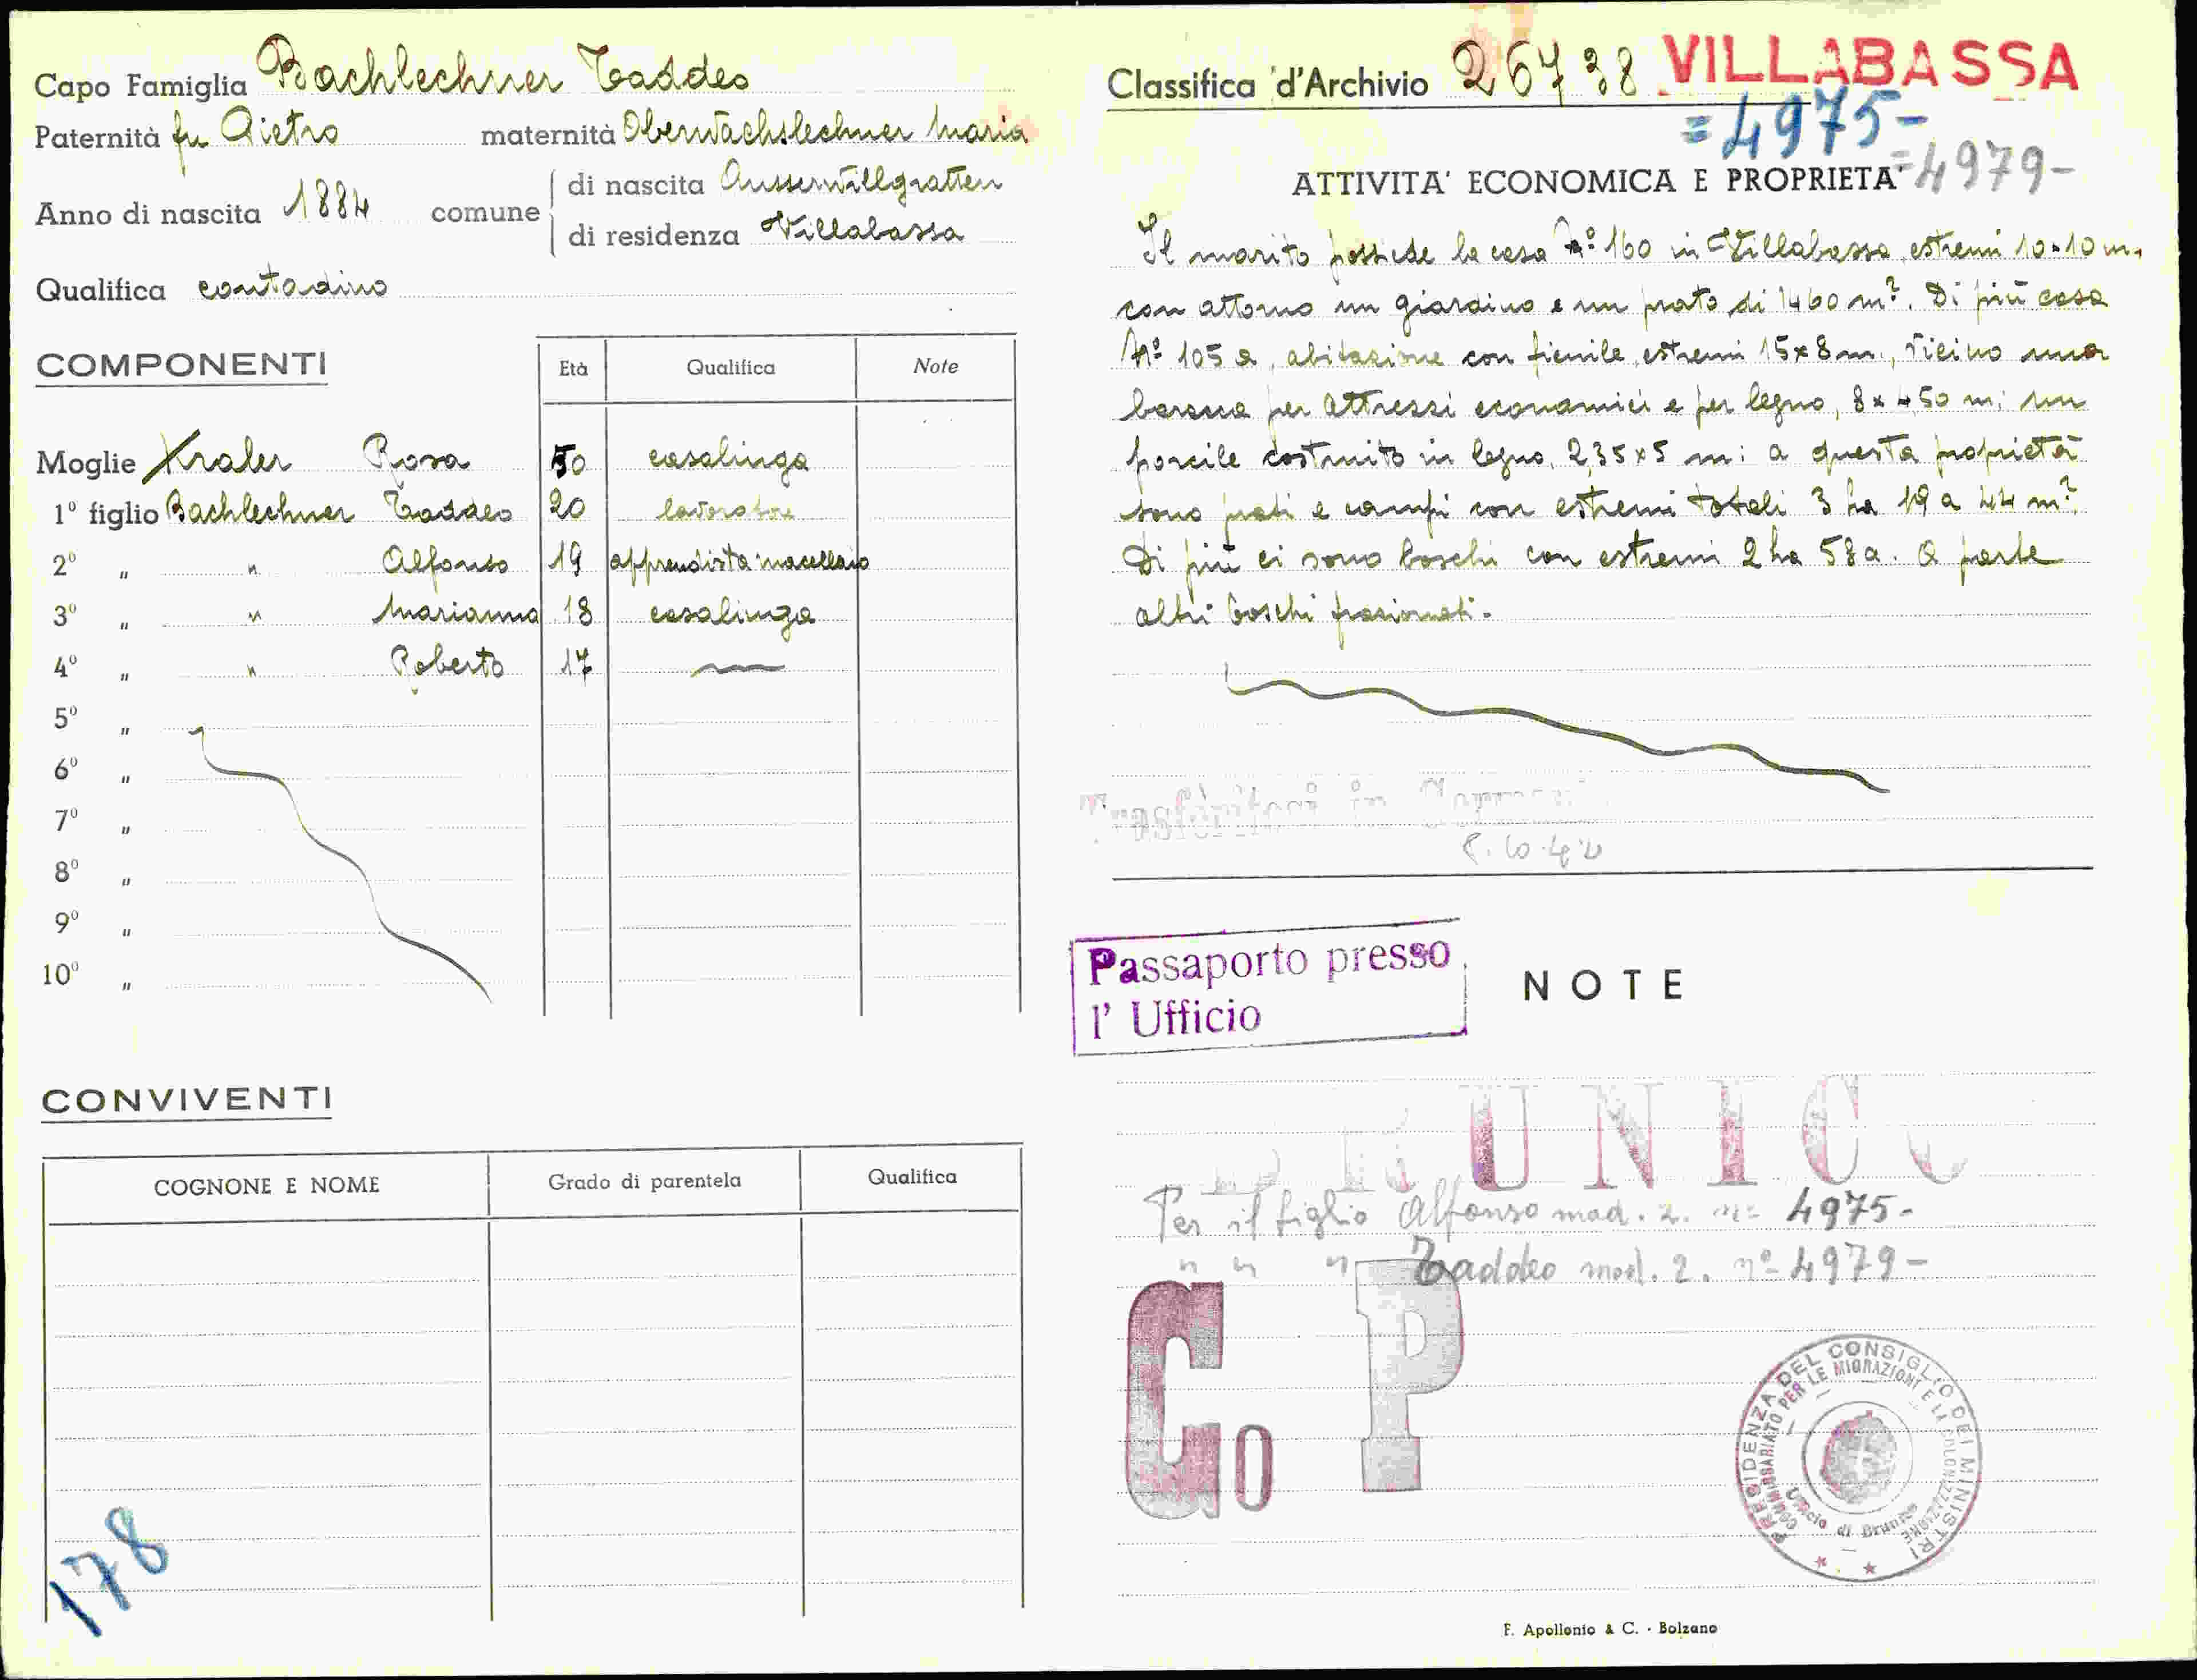 Capo Famiglia Bachlechner Taddeo
Paternità fu Pietro maternità Oberwachslechner Maria
Anno di nascita 1884 comune di nascita Ausservillgratten
di residenza Villabassa
Qualifica contadino
COMPONENTI Età Qualifica Note
Moglie Kraler Rosa 50 casalinga
1° figlio Bachlechner Taddeo 20 lavoratore
2° " " Alfonso 19 apprendista macellaio
3° " " Marianna 18 casalinga
4° " " Roberto 17
5° "
6° "
7° "
8° "
9° "
10° "
CONVIVENTI
COGNONE E NOME Grado di parentela Qualifica
178
Classifica d'Archivio 26738 VILLABASSA
=4975-
=4979-
ATTIVITA' ECONOMICA E PROPRIETA'
Il marito possiede la casa N° 160 in Villabassa, estremi 10·10 m.
con attorno un giardino e un prato di 1460 m². Di più casa
N° 105 a, abitazione con fienile, estremi 15x8 m., vicino una
baracca per attrezzi economici e per legno, 8x4,50 m; un
porcile costruito in legno, 2,35x5 m: a questa proprietà
sono prati e campi con estremi totali 3 ha 19 a 44 m².
Di più ci sono boschi con estremi 2 ha 58 a. A parte
altri boschi frazionati.
Trasferitosi in
Passaporto presso
l' Ufficio
NOTE
BRUNICO
Per il figlio Alfonso mod. 2. n° 4975-
" " " Taddeo mod. 2. n° 4979-
Go P
PRESIDENZA DEL CONSIGLIO DEI MINISTRI
COMMISSARIATO PER LE MIGRAZIONI E LA COLONIZZAZIONE
Ufficio di Brunico
F. Apollonio & C. - Bolzano